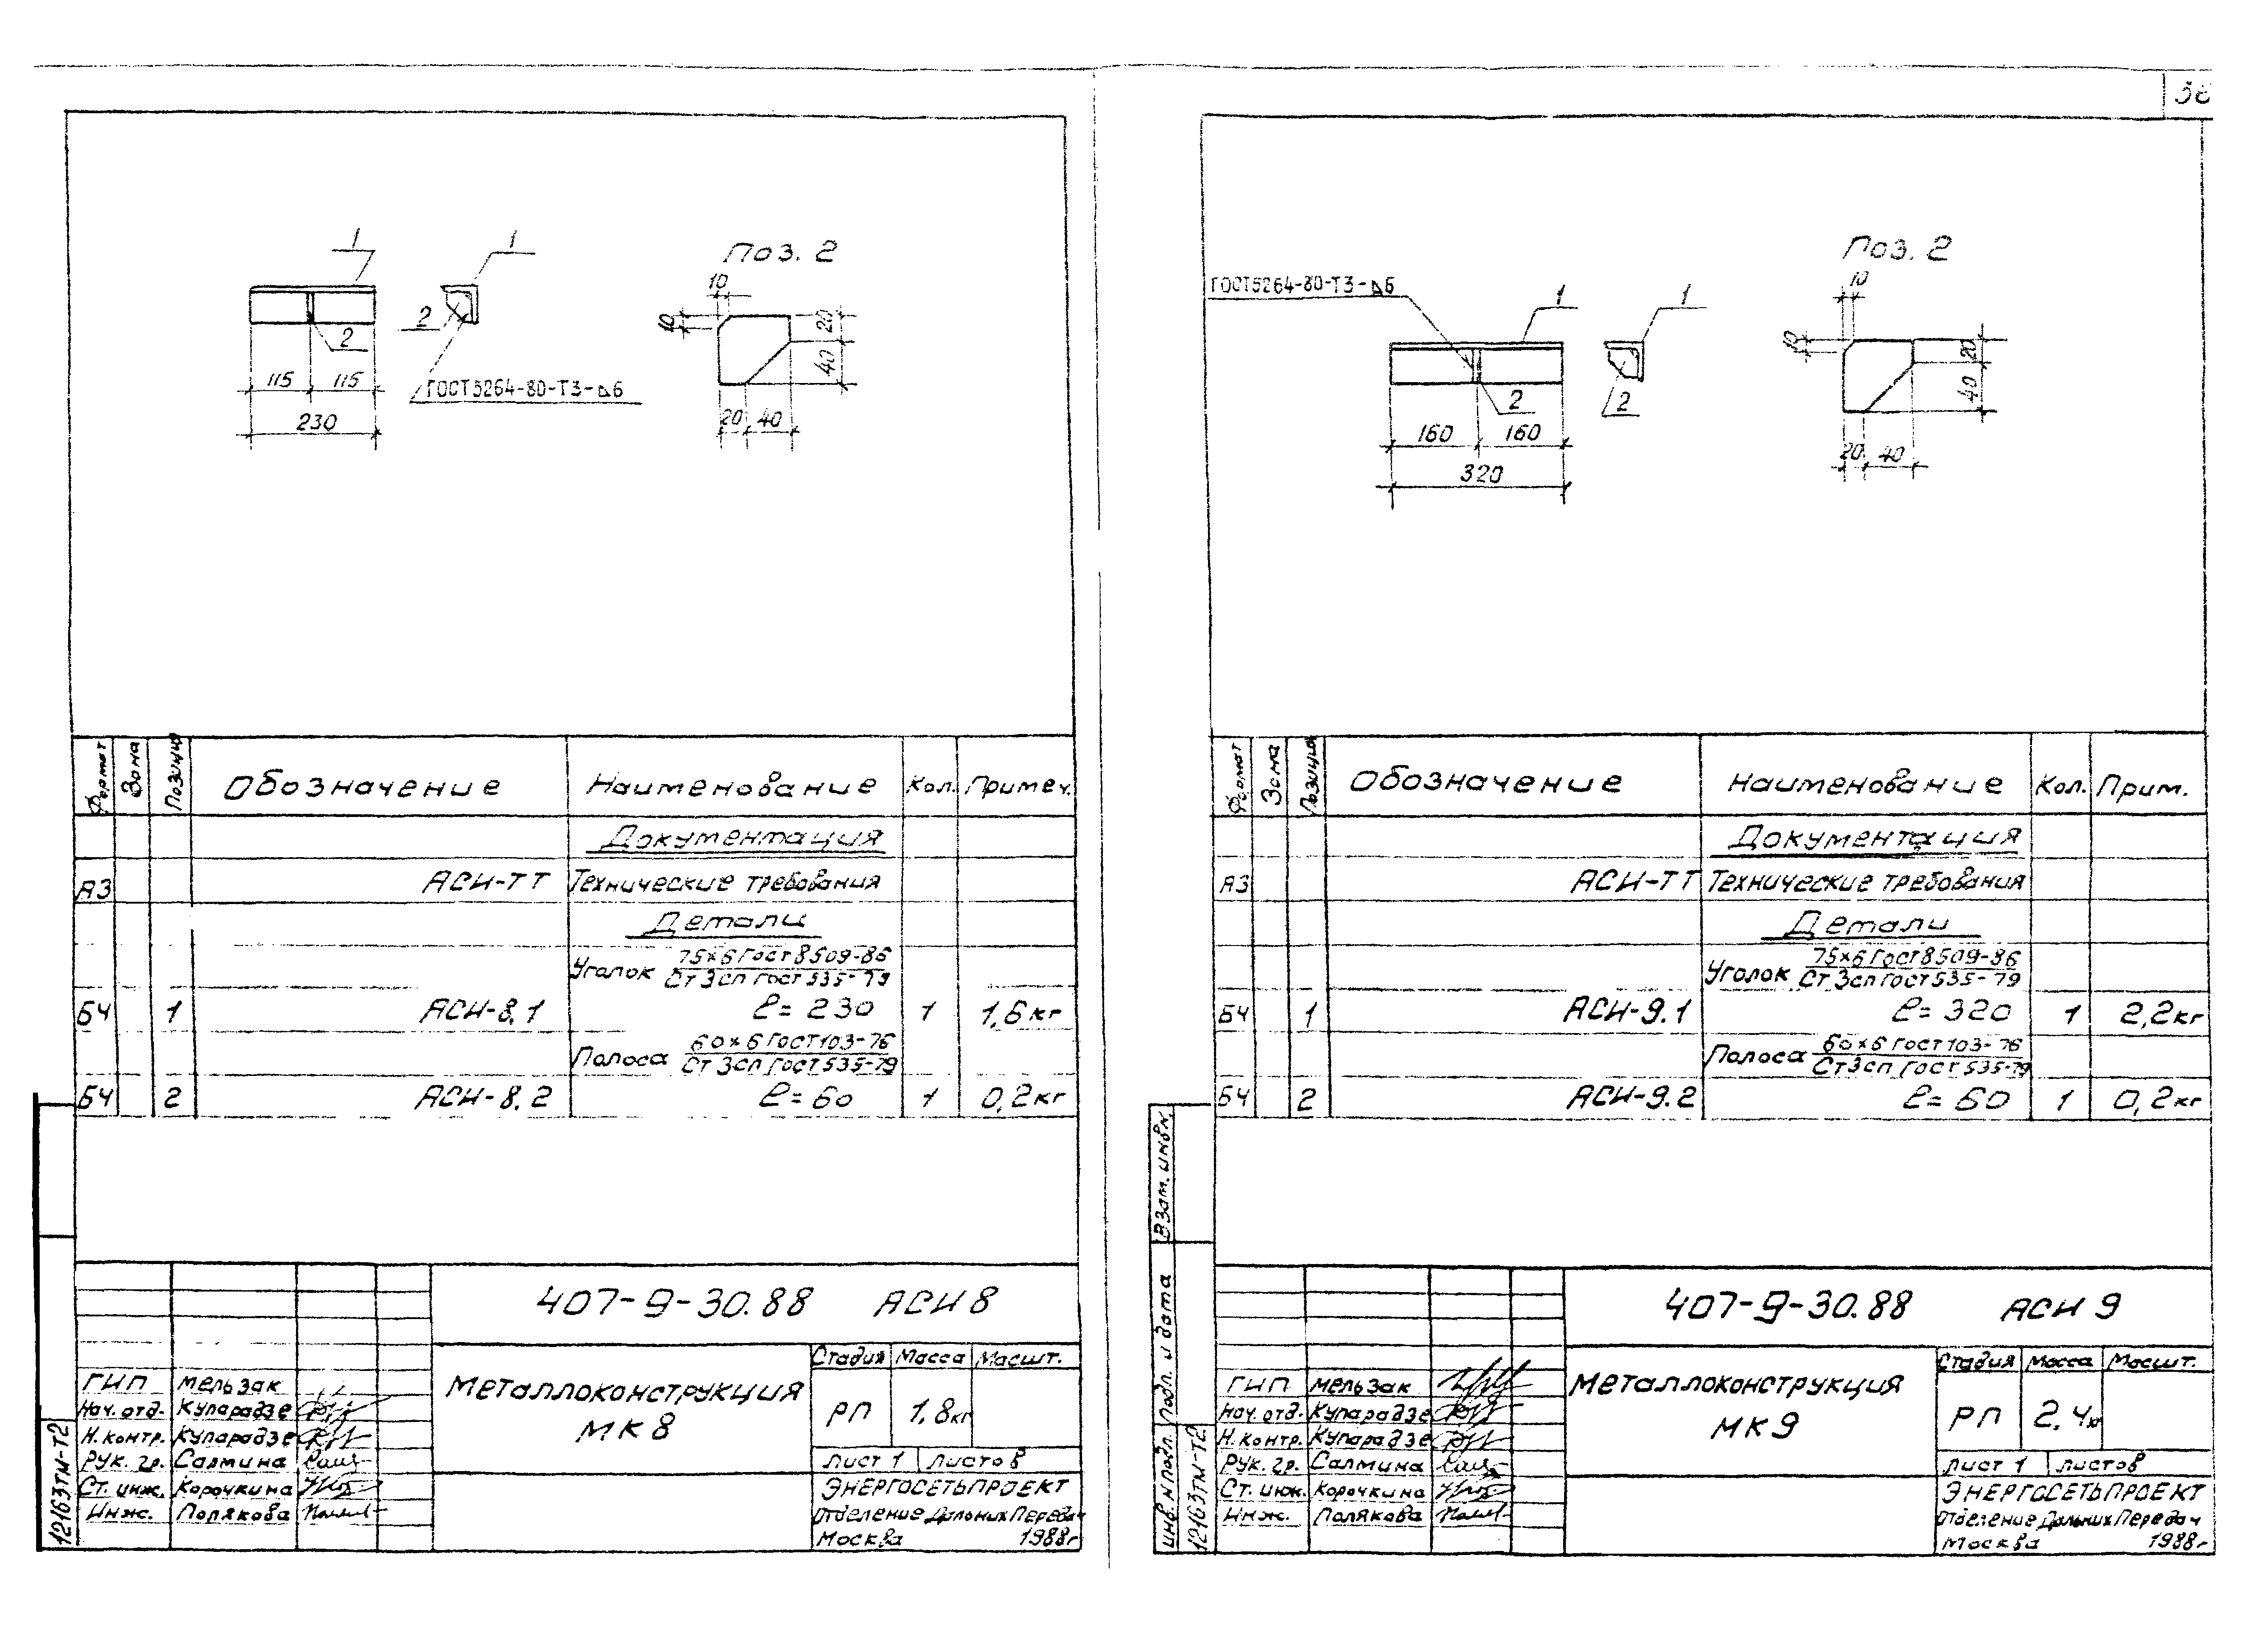 1
1
Поз. 2
10
10
20
40
2
2
115
115
ГОСТ5264-80-Т3-⊿6
230
20
40
Формат
Зона
Позиция
Обозначение
Наименование
Кол.
Примеч.
Документация
А3
АСИ-ТТ
Технические требования
Детали
Уголок 75×6 ГОСТ 8509-86
Ст 3сп ГОСТ 535-79
БЧ
1
АСИ-8.1
ℓ= 230
1
1,6 кг
Полоса 60×6 ГОСТ 103-76
Ст 3сп ГОСТ 535-79
БЧ
2
АСИ-8.2
ℓ= 60
1
0,2 кг
407-9-30.88 АСИ 8
Металлоконструкция
МК 8
Стадия
Масса
Масшт.
РП
1,8кг
Лист 1
Листов
ЭНЕРГОСЕТЬПРОЕКТ
Отделение Дальних Передач
Москва 1988г
ГИП Мельзак
Нач. отд. Купарадзе
Н. контр. Купарадзе
Рук. гр. Салтина
Ст. инж. Корочкина
Инж. Полякова
12163тм-Т2
Поз. 2
ГОСТ5264-80-Т3-⊿6
1
1
10
10
20
40
2
2
160
160
320
20
40
Формат
Зона
Позиция
Обозначение
Наименование
Кол.
Прим.
Документация
А3
АСИ-ТТ
Технические требования
Детали
Уголок 75×6 ГОСТ 8509-86
Ст 3сп ГОСТ 535-79
БЧ
1
АСИ-9.1
ℓ= 320
1
2,2кг
Полоса 60×6 ГОСТ 103-76
Ст 3сп ГОСТ 535-79
БЧ
2
АСИ-9.2
ℓ= 60
1
0,2кг
407-9-30.88 АСИ 9
Металлоконструкция
МК9
Стадия
Масса
Масшт.
РП
2,4кг
Лист 1
Листов
ЭНЕРГОСЕТЬПРОЕКТ
Отделение Дальних Передач
Москва 1988г
ГИП Мельзак
Нач. отд. Купарадзе
Н. контр. Купарадзе
Рук. гр. Салтина
Ст. инж. Корочкина
Инж. Полякова
Взам. инв.N
Подп. и дата
Инв. N подл.
12163тм-Т2